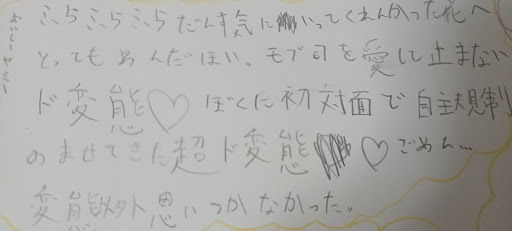 ふらふらふらだんす気にいってくれんかった花へ
とってもあんだほい。モブ司を愛して止まない
ド変態♡ ぼくに初対面で自主規制
のませてきた超ド変態♡ごめん…
変態以外思いつかなかった。
おいしーヤミー